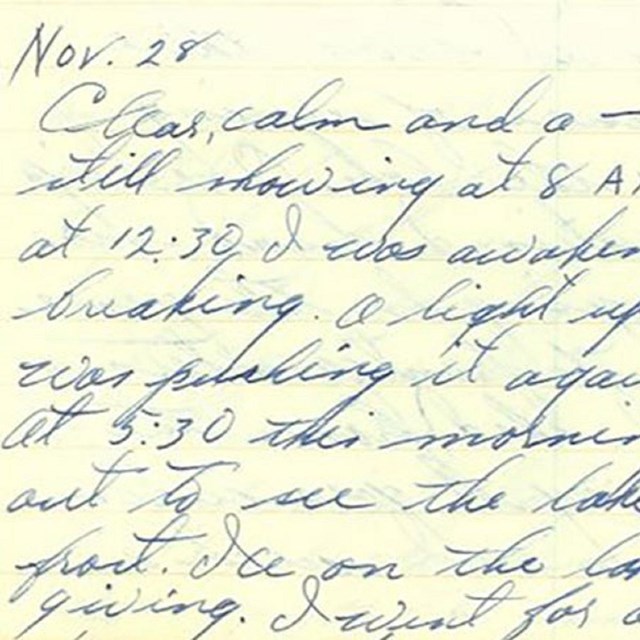 Nov. 28
Clear, calm and a –
still showing at 8 A
at 12:30 I was awaken
breaking. A light up
was pushing it agai
At 5:30 this mornin
out to see the lake
frost. Ice on the la
giving. I went for a